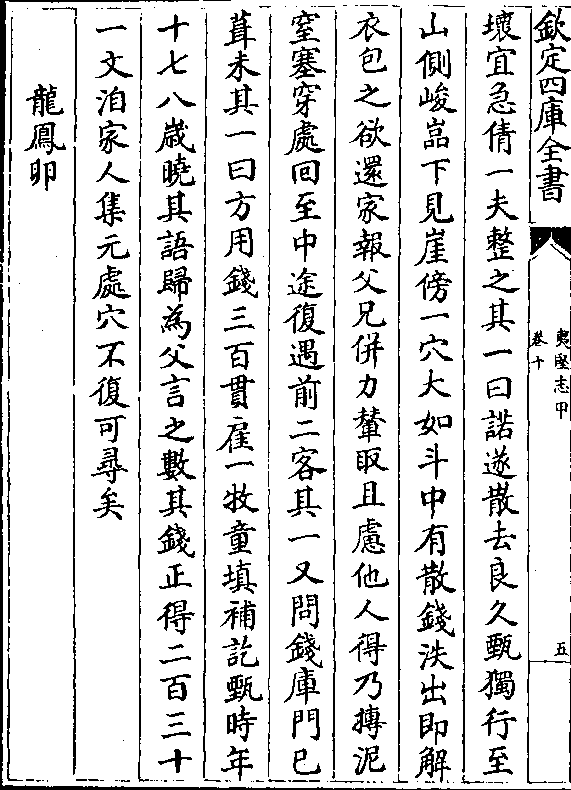 欽定四庫全書
夷堅志甲
卷十
五
壞宜急倩一夫整之其一曰諾遂散去良久甄獨行至
山側峻嵓下見崖傍一穴大如斗中有散錢泆出即解
衣包之欲還家報父兄併力輦取且慮他人得乃摶泥
窒塞穿處回至中途復遇前二客其一又問錢庫門已
葺未其一曰方用錢三百貫雇一牧童填補訖甄時年
十七八嵗曉其語歸為父言之數其錢正得二百三十
一文洎家人集元處穴不復可尋矣
龍鳳卵